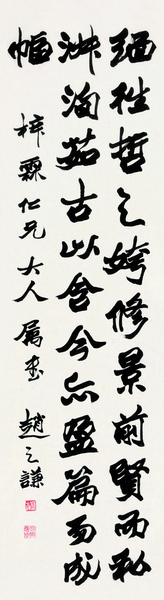 緬往哲之姱修景前賢而私
淑瀹茹古以含今亦盈篇而成
幅
梓霖仁兄大人屬書 趙之謙